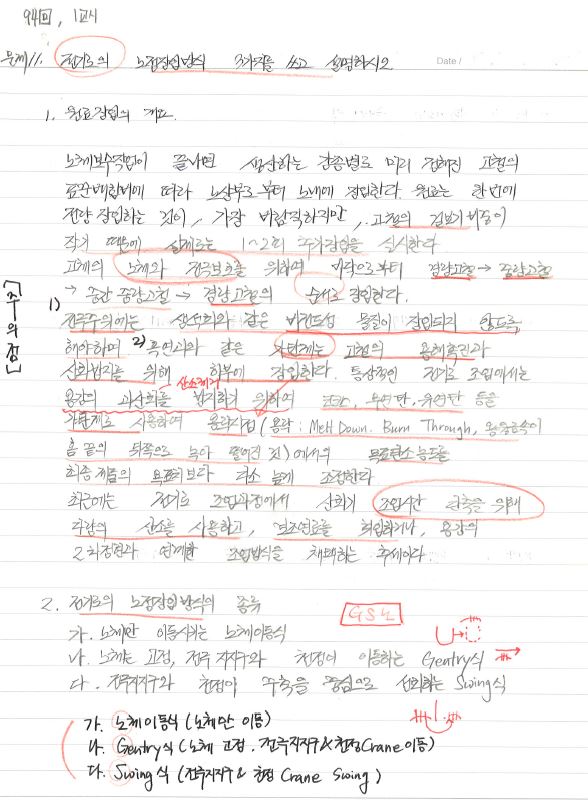 94회, 1교시
문제11. 전기로의 노정장입방식 3가지를 쓰고 설명하시오
Date /
1. 원료장입의 개요
노체보수작업이 끝나면 생산하는 강종별로 미리 정해진 고철의
표준배합비에 따라 노상부로부터 노내에 장입한다. 원료는 한번에
전량 장입하는 것이, 가장 바람직하지만, 고철의 겉보기비중이
작기 때문에 실제로는 1~2회 추가장입을 실시한다
고철의 노체와 전극보호를 위하여 바닥으로부터 경량고철 → 중량고철
→ 중간 중량고철 → 경량고철의 순서로 장입한다.
[주의점]
1) 전극주위에는 생석회와 같은 비전도성 물질이 장입되지 않도록
해야하며 2) 흑연과 같은 가탄제는 고철의 용해촉진과
산화방지를 위해 하부에 장입한다. 통상적인 전기로 조업에서는
산소제거
용강의 과산화를 방지하기 위하여 무연탄, 유연탄 등을
가탄제로 사용하여 용락시점(용락: Melt Down. Burn Through, 용융금속이
홈 끝의 뒤쪽으로 녹아 떨어진 것)에서의 목표탄소농도를
최종제품의 목표치보다 다소 높게 조정한다
최근에는 전기로 조업과정에서 산화기 조업시간 단축을 위해
다량의 산소를 사용하고, 보조연료를 취입하거나, 용강의
2차정련과 연계한 조업방식을 채택하는 추세이다.
2. 전기로의 노정장입방식의 종류
GS노
가. 노체만 이동시키는 노체이동식
나. 노체는 고정, 전극 지지구와 천정이 이동하는 Gentry식
다. 전극지지구와 천정이 주축을 중심으로 선회하는 Swing식
가. 노체이동식 (노체만 이동)
나. Gentry식 (노체 고정, 전극지지구&천정Crane이동)
다. Swing식 (전극지지구 & 천정 Crane Swing)